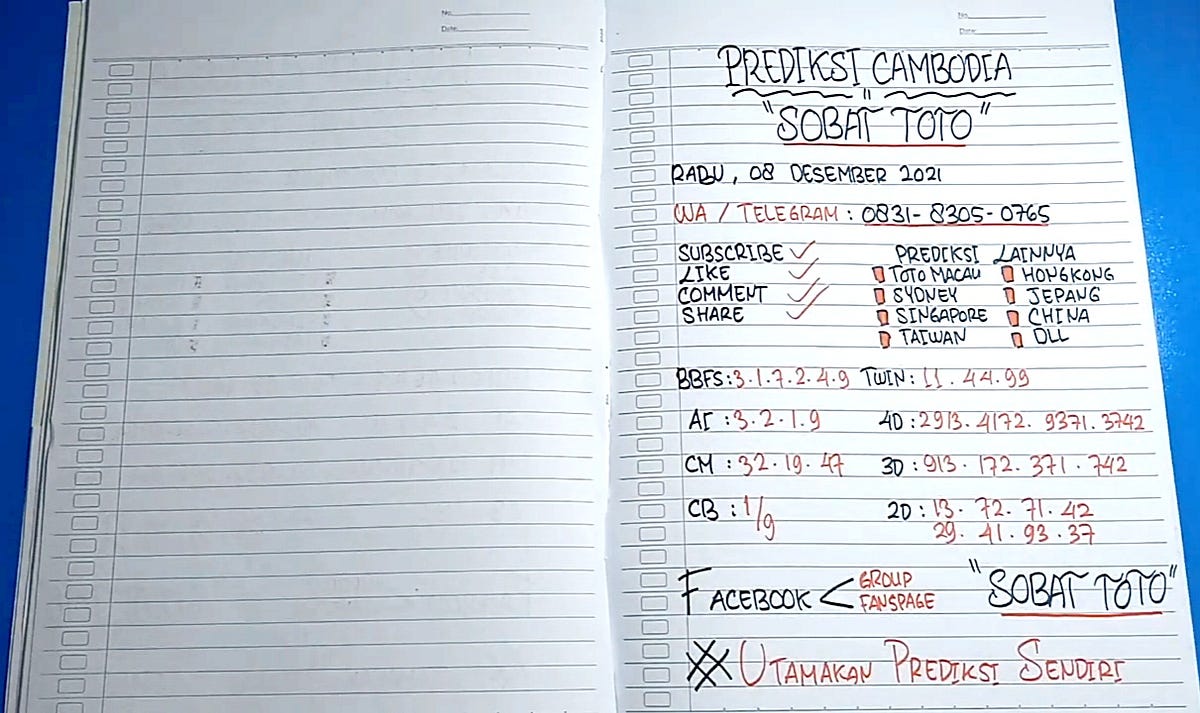 No.
Date:
No.
Date:
PREDIKSI CAMBODIA
"
"SOBAT TOTO"
RABU, 08 DESEMBER 2021
WA / TELEGRAM : 0831-8305-0765
SUBSCRIBE ✓ PREDIKSI LAINNYA
LIKE ✓ TOTO MACAU HONGKONG
COMMENT ✓ SYDNEY JEPANG
SHARE ✓ SINGAPORE CHINA
TAIWAN DLL
BBFS:3.1.7.2.4.9 TWIN: 11.44.99
AI :3.2.1.9 4D:2913.4172.9371.3742
CM :32.19.47 3D:913.172.371.742
CB :1/9 2D:13.72.71.42
29.41.93.37
FACEBOOK < GROUP "SOBAT TOTO"
FANSPAGE
UTAMAKAN PREDIKSI SENDIRI